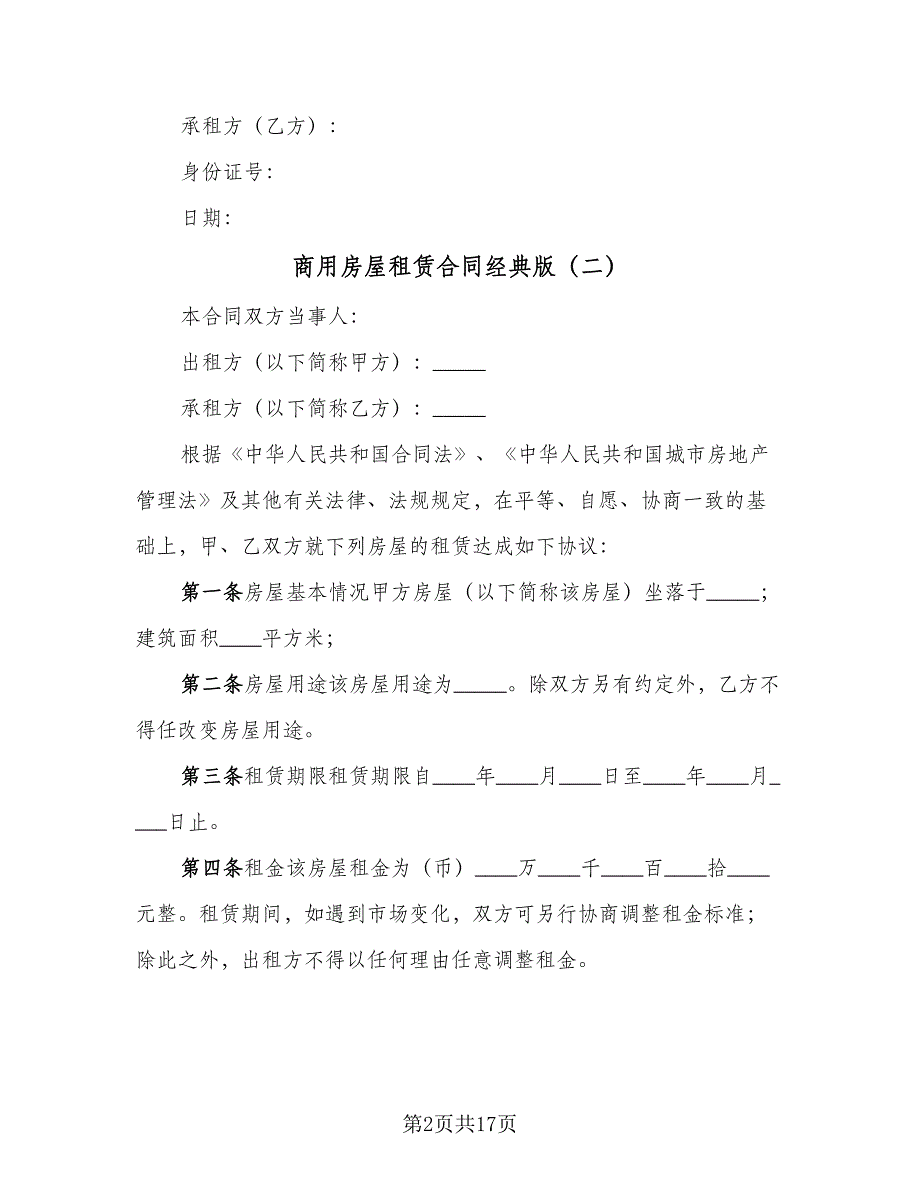 承租方（乙方）：
身份证号：
日期：
商用房屋租赁合同经典版（二）
本合同双方当事人：
出租方（以下简称甲方）：_____
承租方（以下简称乙方）：_____
根据《中华人民共和国合同法》、《中华人民共和国城市房地产
管理法》及其他有关法律、法规规定，在平等、自愿、协商一致的基
础上，甲、乙双方就下列房屋的租赁达成如下协议：
第一条房屋基本情况甲方房屋（以下简称该房屋）坐落于_____；
建筑面积____平方米；
第二条房屋用途该房屋用途为_____。除双方另有约定外，乙方不
得任改变房屋用途。
第三条租赁期限租赁期限自____年____月____日至____年____月_
___日止。
第四条租金该房屋租金为（币）____万____千____百____拾____
元整。租赁期间，如遇到市场变化，双方可另行协商调整租金标准；
除此之外，出租方不得以任何理由任意调整租金。
第2页共17页